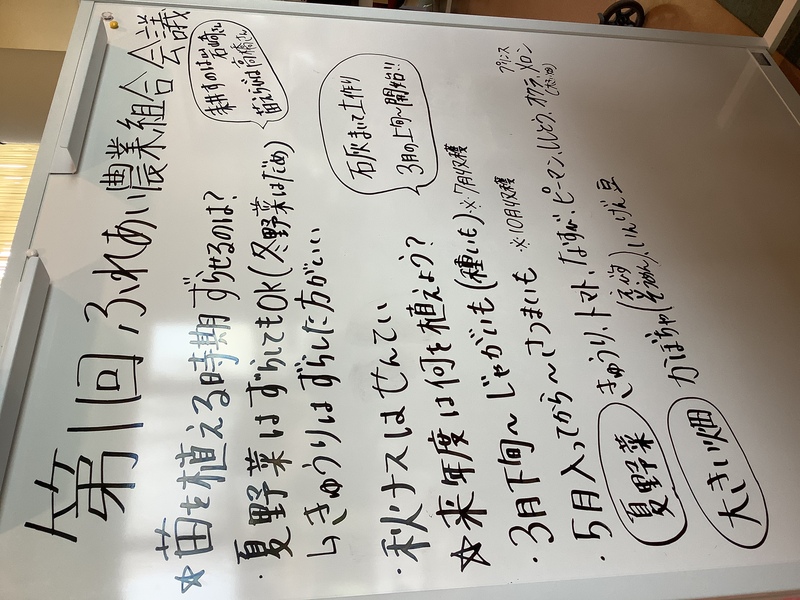 第1回 ふれあい農業組合会議
耕すのは岩崎さん
苗えらびは高橋さん
☆苗を植える時期ずらせるのは?
・夏野菜はずらしてもOK(冬野菜はだめ)
↳きゅうりはずらした方がいい
石灰まいて土作り
3月の上旬〜開始!!
・秋ナスはせんてい
☆来年度は何を植えよう?
・3月下旬〜じゃがいも(種いも)※7月4収穫
・5月入ってから〜さつまいも ※10月4収穫
夏野菜 きゅうり、トマト、なす、ピーマン、ししとう、オクラ、メロン
プリンス
大きい畑 かぼちゃ(えびす そうめん)、いんげん豆